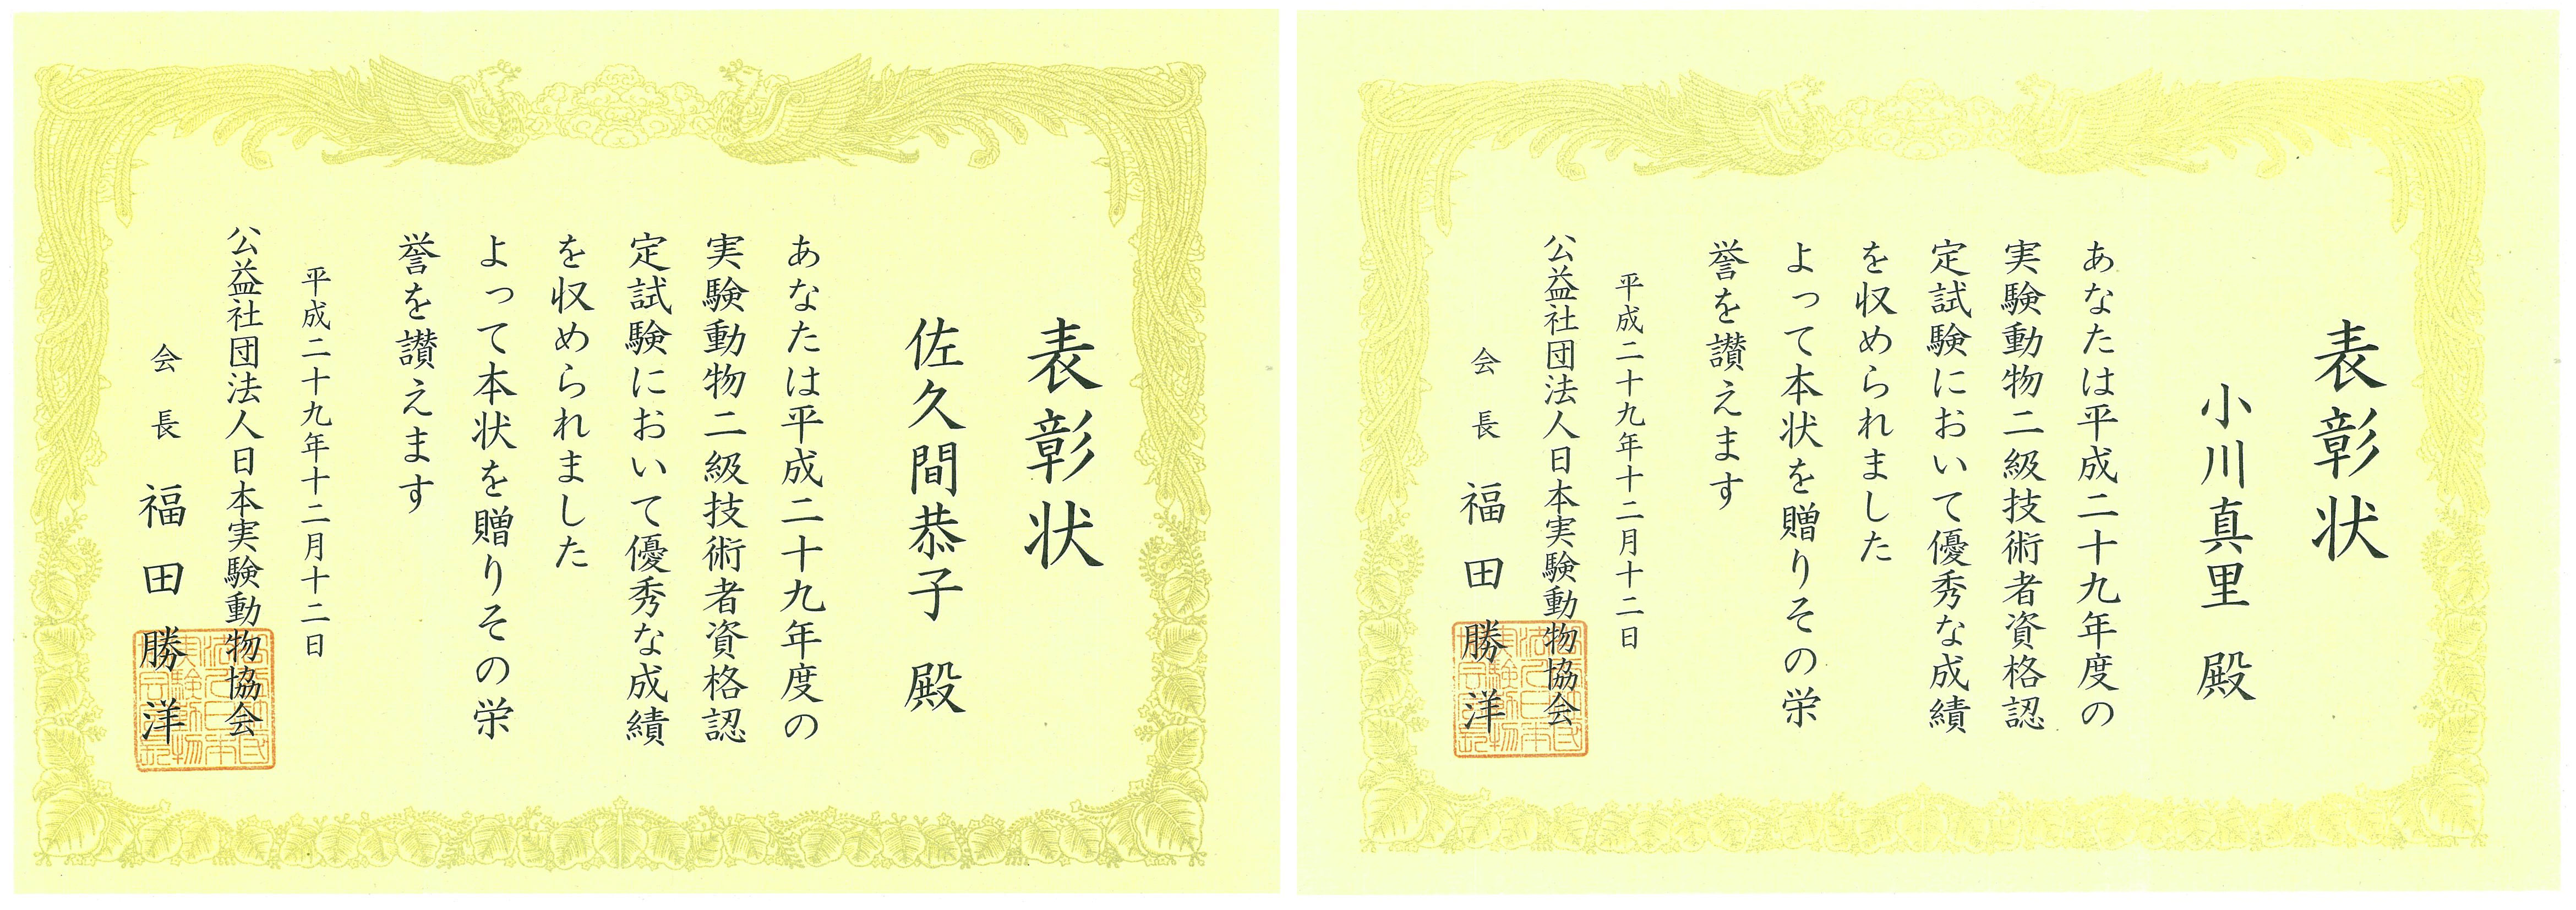 表彰状
佐久間恭子 殿
あなたは平成二十九年度の
実験動物二級技術者資格認
定試験において優秀な成績
を収められました
よって本状を贈りその栄
誉を讃えます
平成二十九年十二月十二日
公益社団法人日本実験動物協会
会長 福田勝洋
表彰状
小川真里 殿
あなたは平成二十九年度の
実験動物二級技術者資格認
定試験において優秀な成績
を収められました
よって本状を贈りその栄
誉を讃えます
平成二十九年十二月十二日
公益社団法人日本実験動物協会
会長 福田勝洋